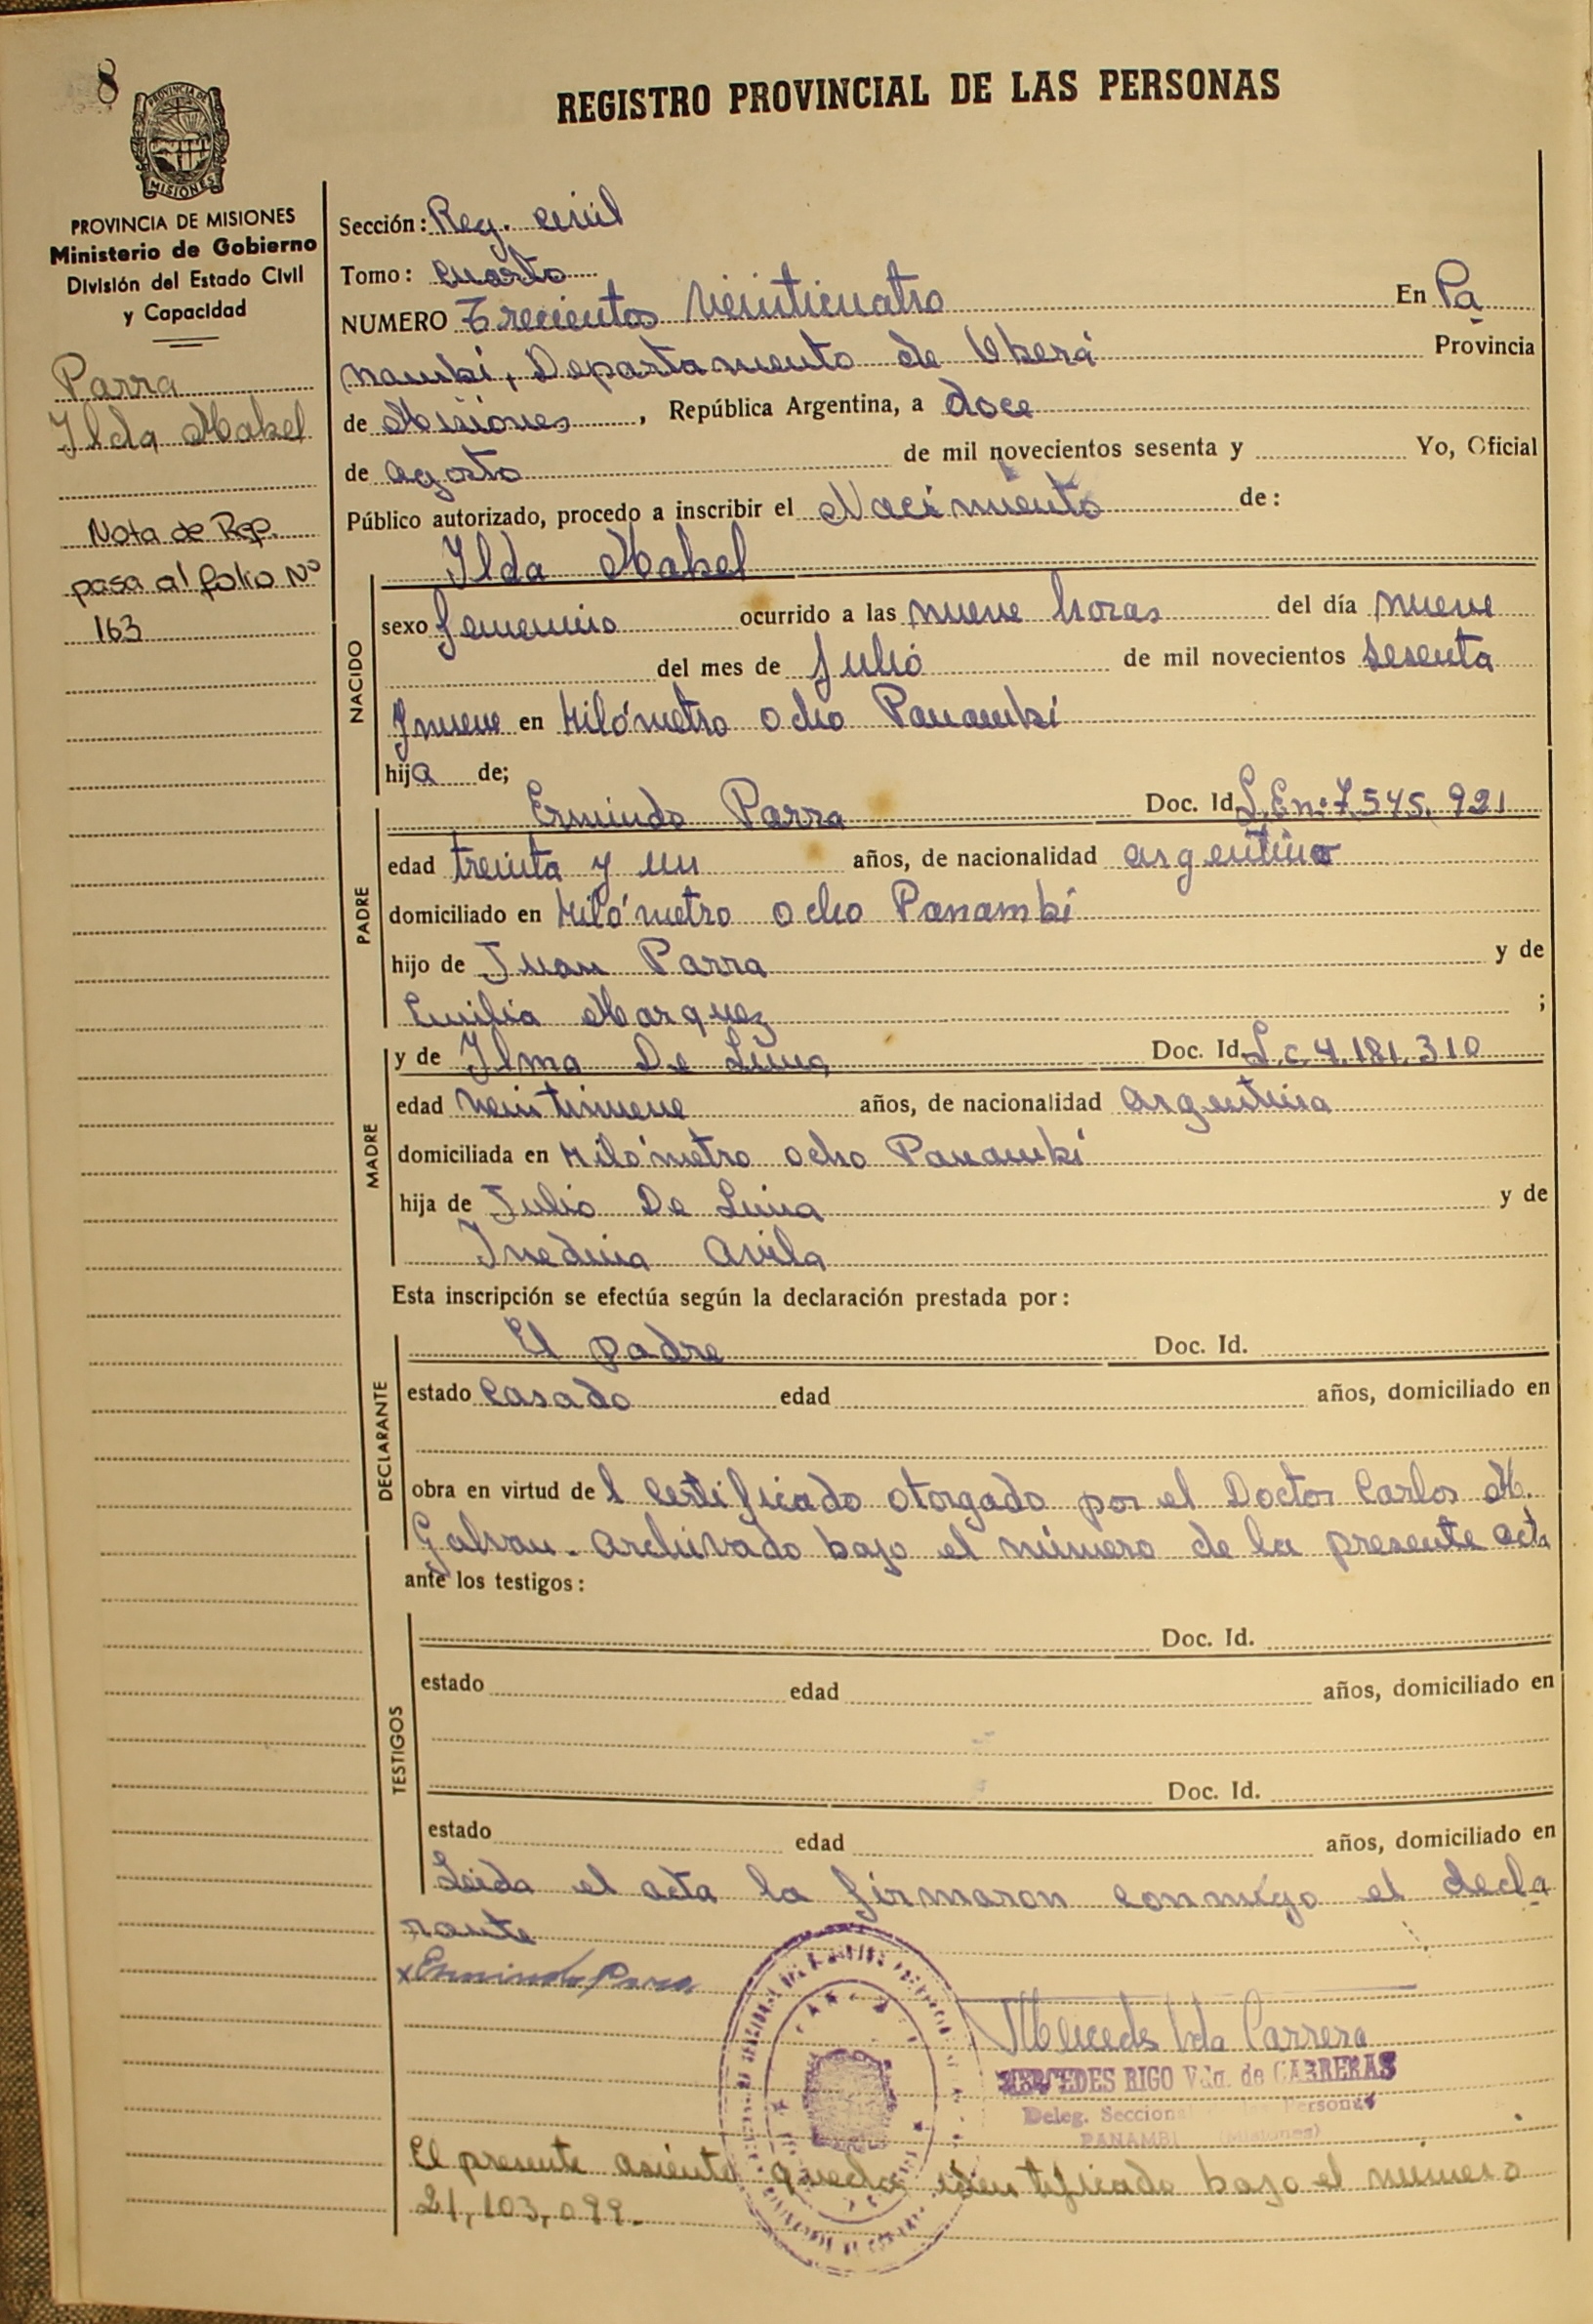 8
REGISTRO PROVINCIAL DE LAS PERSONAS
PROVINCIA DE
MISIONES
PROVINCIA DE MISIONES
Ministerio de Gobierno
División del Estado Civil
y Capacidad
Parra
Ilda Mabel
Nota de Rep.
pasa al folio Nº
163
Sección: Reg. civil
Tomo: cuarto
NUMERO Trecientos veinticuatro En Pa
nambí, Departamento de Oberá Provincia
de Misiones, República Argentina, a doce
de agosto de mil novecientos sesenta y Yo, Oficial
Público autorizado, procedo a inscribir el Nacimiento de:
Ilda Mabel
NACIDO
sexo femenino ocurrido a las nueve horas del día nueve
del mes de julio de mil novecientos sesenta
y nueve en Kilómetro ocho Panambí
hija de;
PADRE
Ermindo Parra Doc. Id. L.En: 7.545.921
edad treinta y un años, de nacionalidad argentino
domiciliado en Kilómetro ocho Panambí
hijo de Juan Parra y de
Emilia Marquez ;
MADRE
y de Ilma De Lima Doc. Id. L.c 4.181.310
edad veintinueve años, de nacionalidad argentina
domiciliada en Kilómetro ocho Panambí
hija de Julio De Lima y de
Avila
Esta inscripción se efectúa según la declaración prestada por:
DECLARANTE
El padre Doc. Id.
estado casado edad años, domiciliado en
obra en virtud del certificado otorgado por el Doctor Carlos M.
Galvan. archivado bajo el número de la presente acta
ante los testigos:
TESTIGOS
Doc. Id.
estado edad años, domiciliado en
Doc. Id.
estado edad años, domiciliado en
Leida el acta la firmaron conmigo el decla
rante
x Ermindo Parra
Mercedes Vda Carrera
MERCEDES RIGO Vda. de CARRERAS
Deleg. Seccional Personas
PANAMBI (Misiones)
El presente asiento queda identificado bajo el número
21,103,099.